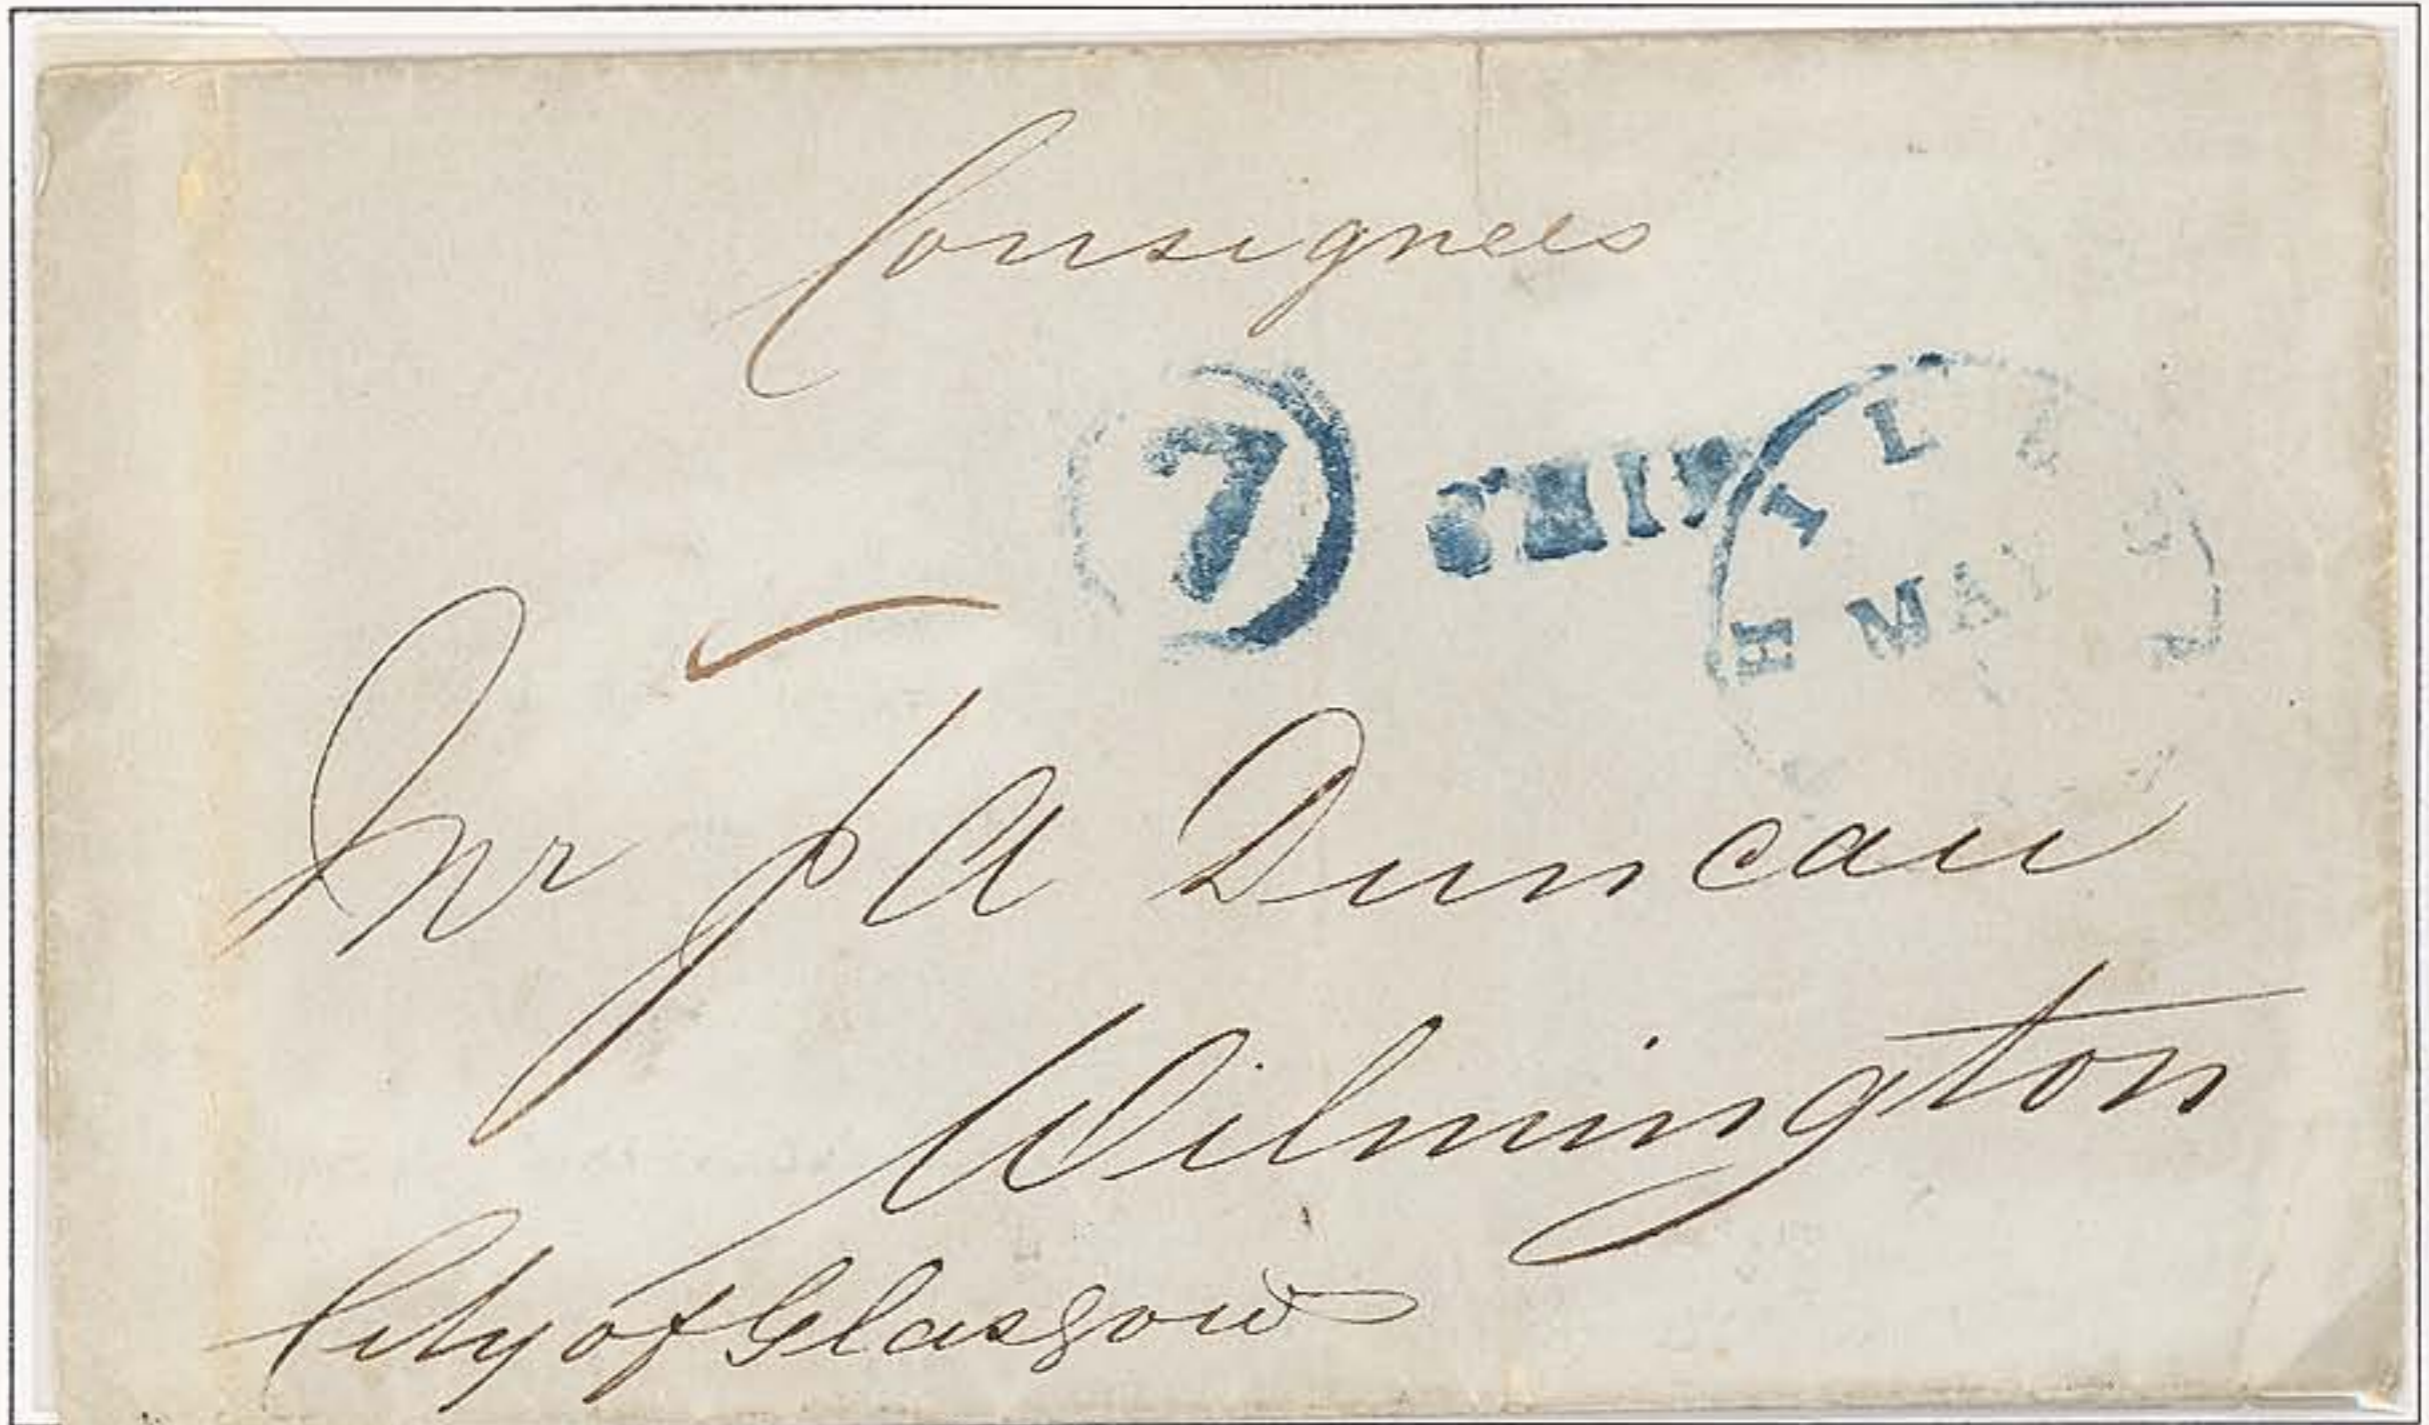 Consignees
7 SHIP
MAY
Mr J A Duncan
Wilmington
City of Glasgow